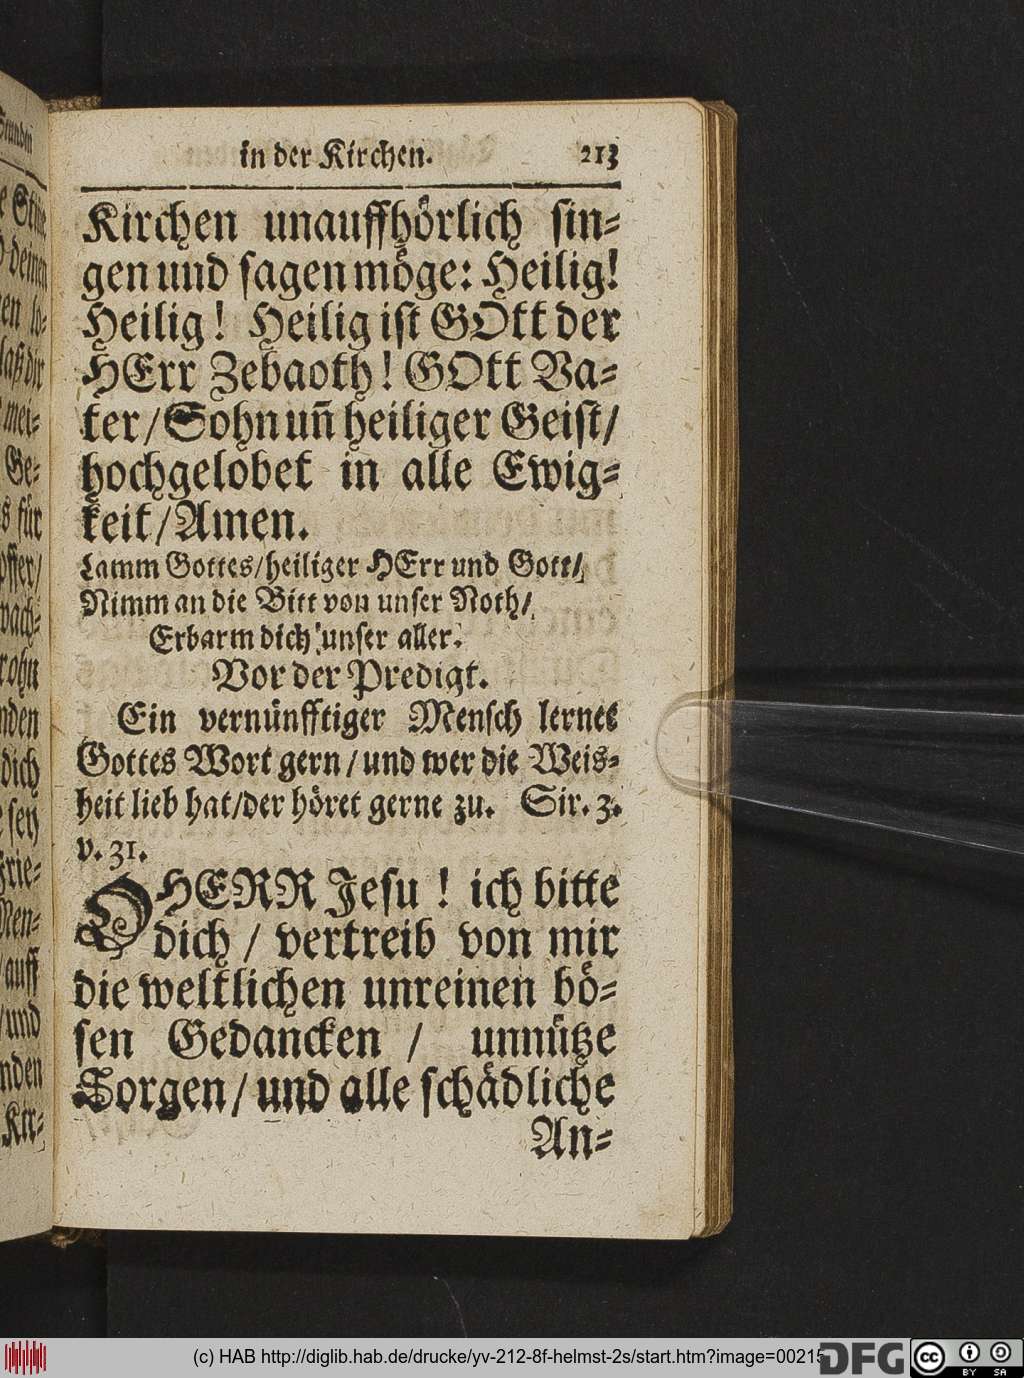 in der Kirchen. 213
Kirchen unauffhörlich sin-
gen und sagen möge: Heilig!
Heilig! Heilig ist GOtt der
HErr Zebaoth! GOtt Va-
ter/Sohn uñ heiliger Geist/
hochgelobet in alle Ewig-
keit/Amen.
Lamm Gottes/heiliger HErr und Gott/
Nimm an die Bitt von unser Noth/
Erbarm dich unser aller.
Vor der Predigt.
Ein vernünfftiger Mensch lernet
Gottes Wort gern/und wer die Weis-
heit lieb hat/der höret gerne zu. Sir. 3.
v. 31.
O HERR Jesu! ich bitte
dich / vertreib von mir
die weltlichen unreinen bö-
sen Gedancken / unnütze
Sorgen/und alle schädliche
An-
Stunden
deinen
laß dir
mei-
Ge-
für
dich
sey
Men-
auff
/und
Kir-
(c) HAB http://diglib.hab.de/drucke/yv-212-8f-helmst-2s/start.htm?image=00215
DFG
cc BY SA